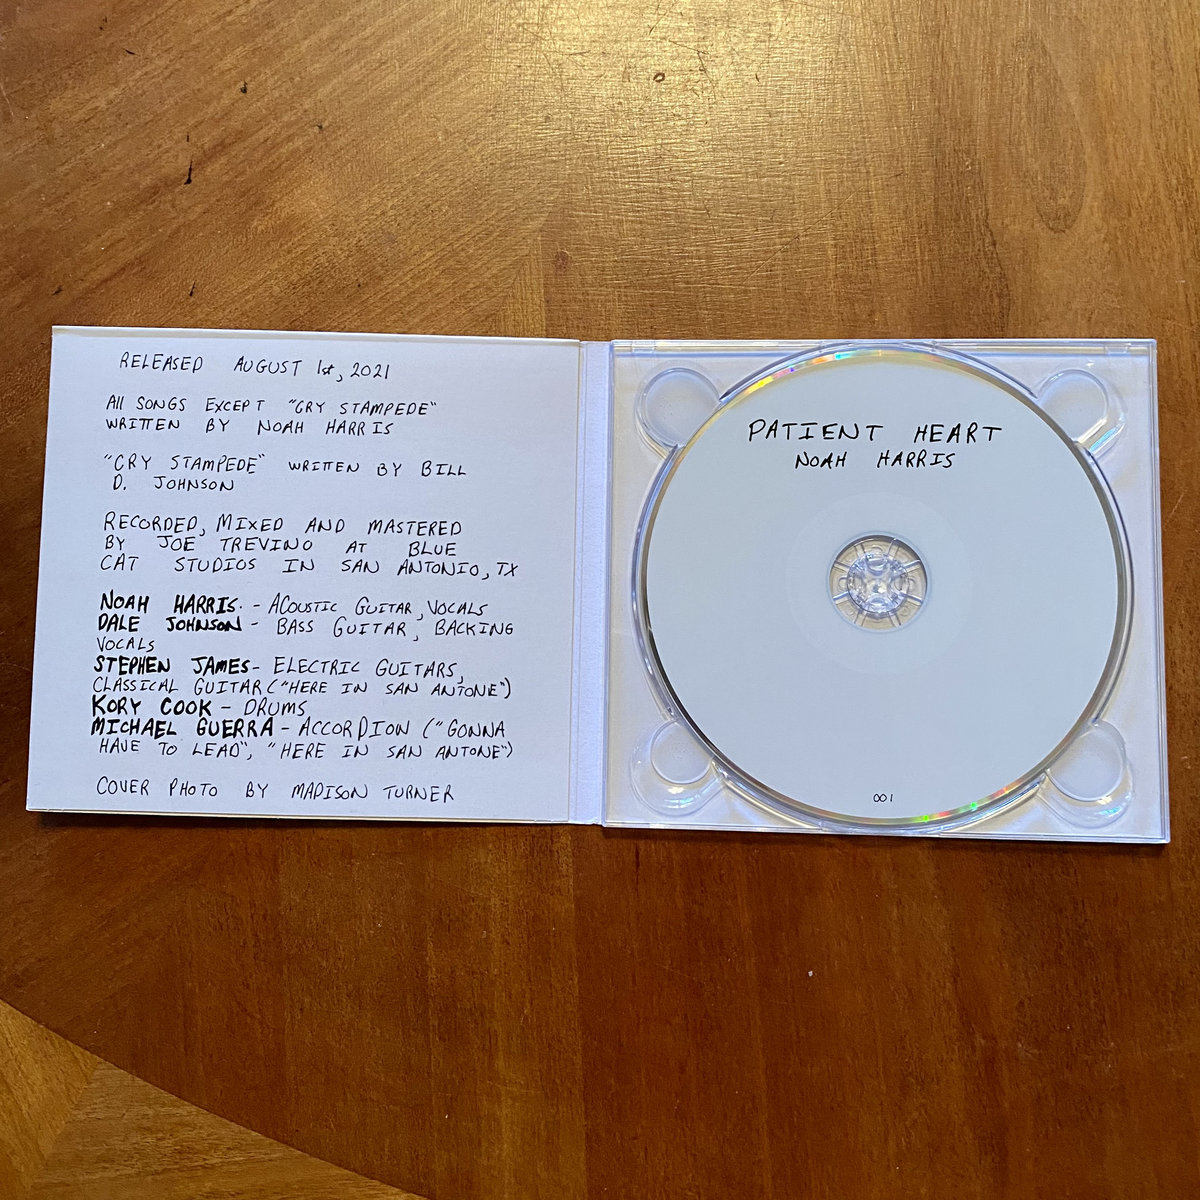 RELEASED AUGUST 1st, 2021
All SONGS EXCEPT "CRY STAMPEDE"
WRITTEN BY NOAH HARRIS
"CRY STAMPEDE" WRITTEN BY BILL
D. JOHNSON
RECORDED, MIXED AND MASTERED
BY JOE TREVINO AT BLUE
CAT STUDIOS IN SAN ANTONIO, TX
NOAH HARRIS. - ACOUSTIC GUITAR, VOCALS
DALE JOHNSON - BASS GUITAR, BACKING
VOCALS
STEPHEN JAMES - ELECTRIC GUITARS,
CLASSICAL GUITAR ("HERE IN SAN ANTONE")
KORY COOK - DRUMS
MICHAEL GUERRA - ACCORDION ("GONNA
HAVE TO LEAD", "HERE IN SAN ANTONE")
COVER PHOTO BY MADISON TURNER
PATIENT HEART
NOAH HARRIS
001